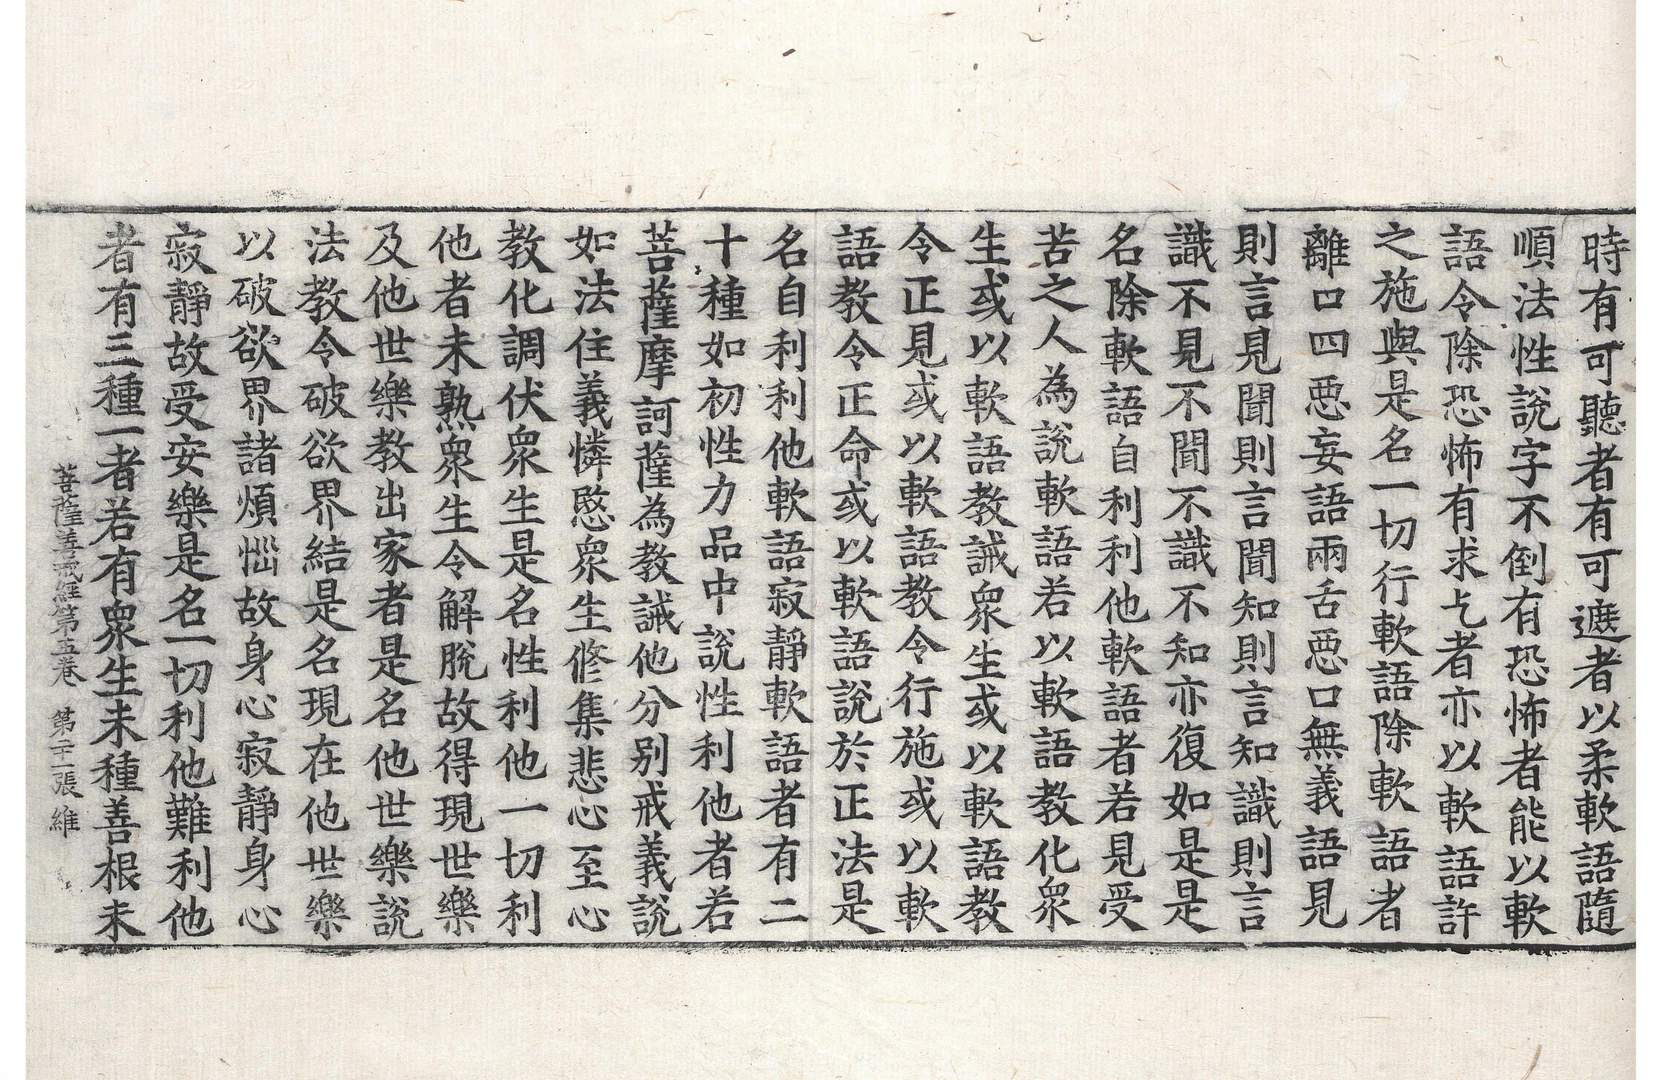 時有可聽者有可遮者以柔軟語隨
順法性說字不倒有恐怖者能以軟
語令除恐怖有求乞者亦以軟語許
之施與是名一切行軟語除軟語者
離口四惡妄語兩舌惡口無義語見
則言見聞則言聞知則言知識則言
識不見不聞不識不知亦復如是是
名除軟語自利利他軟語者若見受
苦之人為說軟語若以軟語教化衆
生或以軟語教誡衆生或以軟語教
令正見或以軟語教令行施或以軟
語教令正命或以軟語說於正法是
名自利利他軟語寂靜軟語者有二
十種如初性力品中說性利他者若
菩薩摩訶薩為教誡他分别戒義說
如法住義憐愍衆生修集悲心至心
教化調伏衆生是名性利他一切利
他者未熟衆生令解脫故得現世樂
及他世樂教出家者是名他世樂說
法教令破欲界結是名現在他世樂
以破欲界諸煩惱故身心寂靜身心
寂靜故受安樂是名一切利他難利他
者有三種一者若有衆生未種善根未
菩薩善戒經第五卷 第二十一張 維